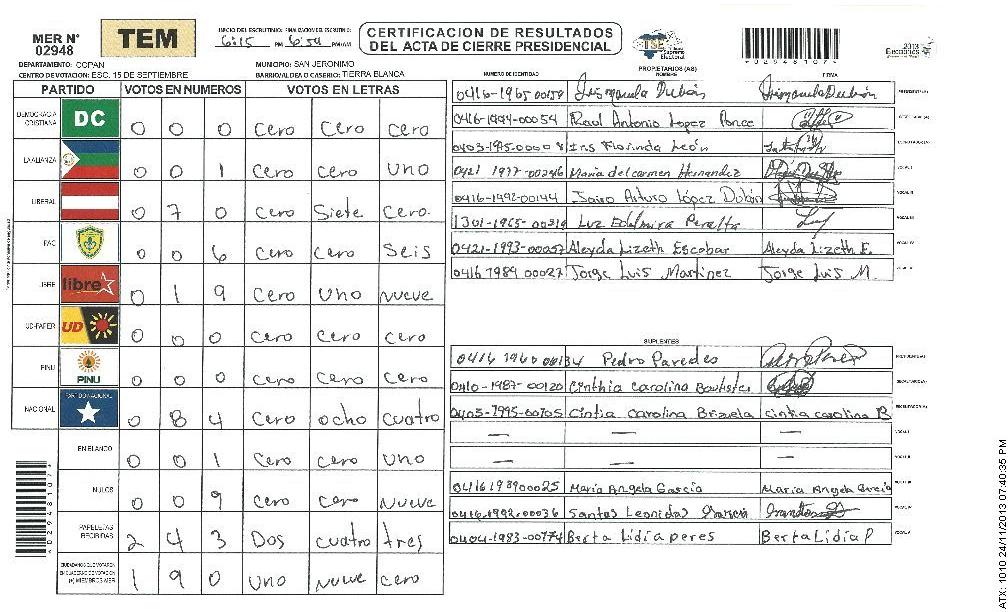 MER N° 02948
TEM
INICIO DEL ESCRUTINIO: 6:15 PM FINALIZACION DEL ESCRUTINIO: 6:59 PM/AM
CERTIFICACION DE RESULTADOS
DEL ACTA DE CIERRE PRESIDENCIAL
TSE Tribunal Supremo Electoral
2013 Elecciones
DEPARTAMENTO: COPAN
MUNICIPIO: SAN JERONIMO
CENTRO DE VOTACION: ESC. 15 DE SEPTIEMBRE
BARRIO/ALDEA O CASERIO: TIERRA BLANCA
PARTIDO VOTOS EN NUMEROS VOTOS EN LETRAS
DEMOCRACIA CRISTIANA DC 0 0 0 Cero Cero Cero
LA ALIANZA 0 0 1 Cero Cero Uno
LIBERAL 0 7 0 Cero Siete Cero.
PAC 0 0 6 Cero Cero Seis
LIBRE libre 0 1 9 Cero Uno Nueve
UD-FAPER UD 0 0 0 Cero Cero Cero
PINU PINU 0 0 0 Cero Cero Cero
NACIONAL PARTIDO NACIONAL 0 8 4 Cero ocho cuatro
EN BLANCO 0 0 1 Cero Cero Uno
NULOS 0 0 9 Cero Cero Nueve
PAPELETAS RECIBIDAS 2 4 3 Dos cuatro tres
CIUDADANOS QUE VOTARON EN CUADERNO DE VOTACION (+) MIEMBROS MER 1 9 0 Uno Nueve cero
NUMERO DE IDENTIDAD PROPIETARIOS (AS) NOMBRE FIRMA
0416-1965-00159 Dubón PRESIDENTE(A)
0416-1994-00054 Raul Antonio Lopez Ponce SECRETARIO(A)
Iris Florinda León ESCRUTADOR(A)
0421 1977-00246 Maria del carmen Hernandez VOCAL I
0416-1992-00144 Jairo Arturo López Dubón VOCAL II
1301-1965-00319 Luz Edelmira Peralta VOCAL III
0421-1993-00057 Aleyda Lizeth Escobar Aleyda Lizeth E.
0416 1989 00027 Jorge Luis Martinez Jorge Luis M.
SUPLENTES
0416 1960 00134 Pedro Paredes PRESIDENTE(A)
0410-1987-00120 Cinthia Carolina Bautista SECRETARIO(A)
0405-1995-00705 Cintia Carolina Brizuela cintia carolina B ESCRUTADOR(A)
— — — VOCAL I
— — — VOCAL II
0416198900025 María Angela García Maria Angela Garcia
0416.1992.00036 Santos Leonidas Garcia
0404-1983-00774 Berta Lidia peres Berta Lidia P
*029481071*
ATX: 1010 24/11/2013 07:40:35 PM